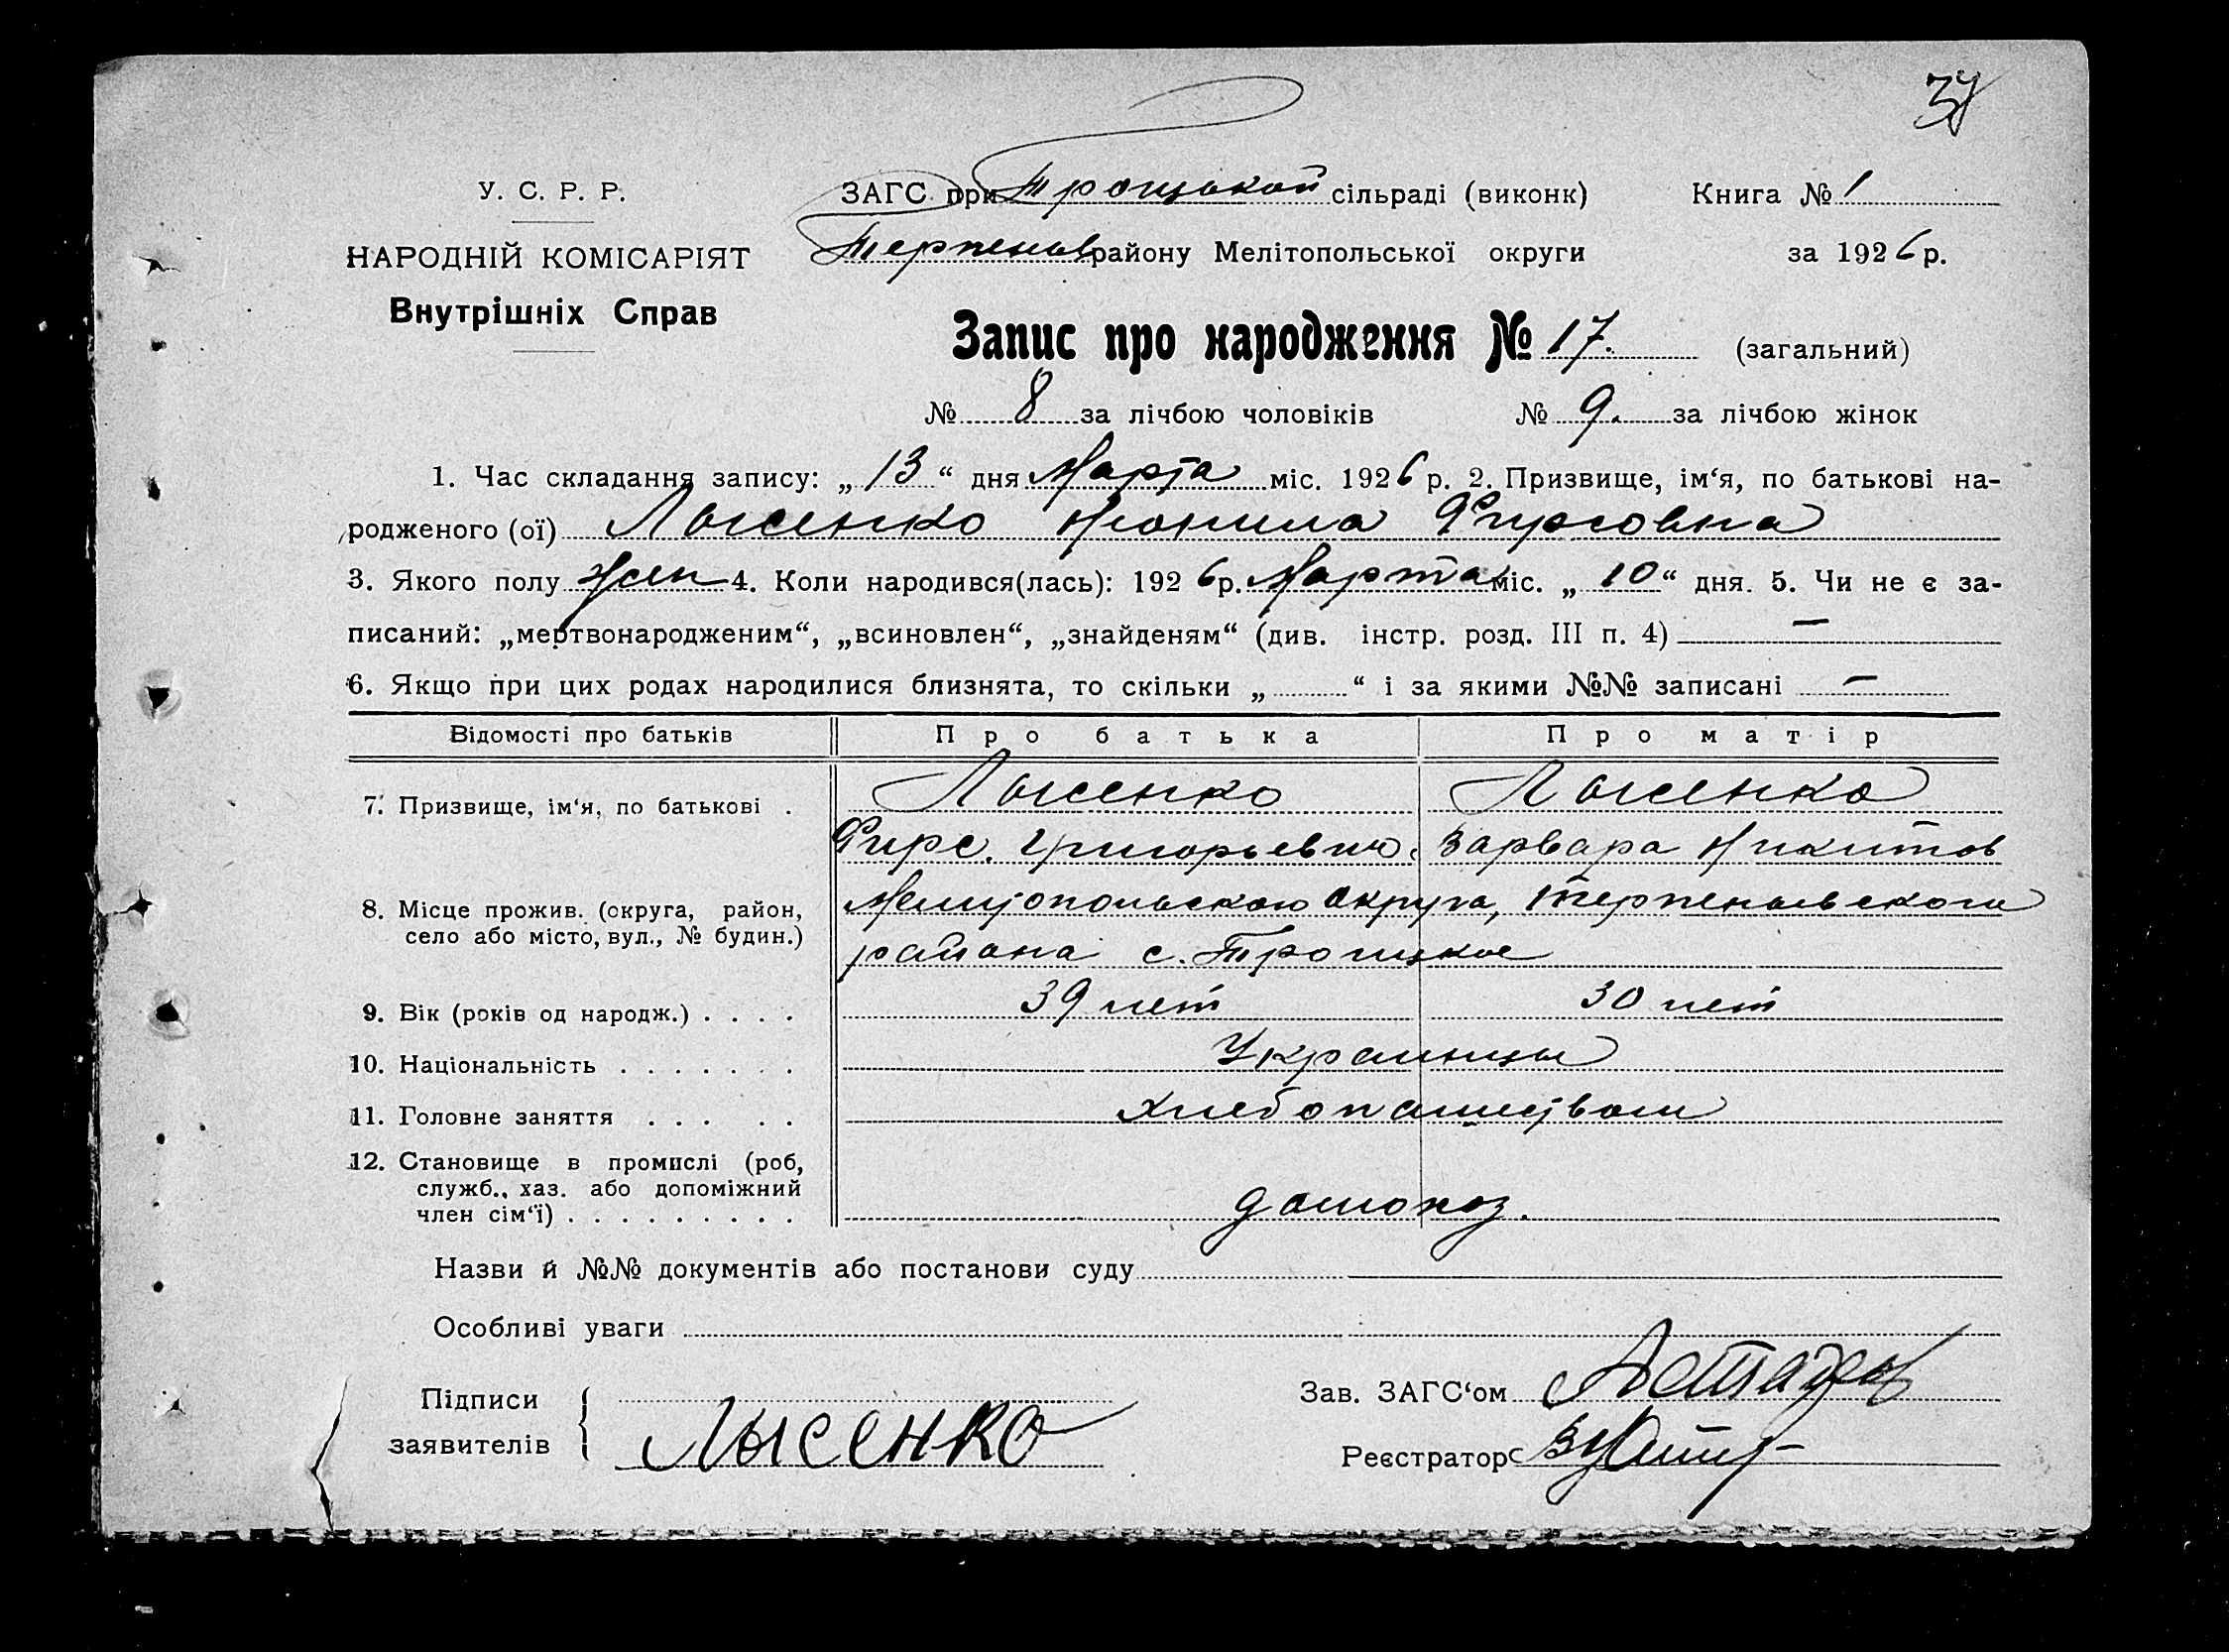 У. С. Р. Р.
ЗАГС при Троицькой сільраді (виконк) Книга № 1
НАРОДНІЙ КОМІСАРІЯТ
Терпенов району Мелітопольської округи за 1926 р.
Внутрішніх Справ
Запис про народження № 17. (загальний)
№ 8 за лічбою чоловіків № 9. за лічбою жінок
1. Час складання запису: „ 13 “ дня Марта міс. 1926 р. 2. Призвище, ім‘я, по батькові на-
родженого (ої) Лысенко Неонила Фирсовна
3. Якого полу жен 4. Коли народився(лась): 1926 р. Марта міс. „ 10 “ дня. 5. Чи не є за-
писаний: „мертвонародженим“, „всиновлен“, „знайденям“ (див. інстр. розд. III п. 4) —
6. Якщо при цих родах народилися близнята, то скільки „ “ і за якими №№ записані —
Відомості про батьків Про батька Про матір
7. Призвище, ім‘я, по батькові . Лысенко Лысенко
Фирс. Григорьевич. Варвара Никитов
8. Місце прожив. (округа, район, Мелитопольского округа, Терпеньевского
село або місто, вул., № будин.) района с. Троицкое
9. Вік (років од народж.) . . . . 39 лет 30 лет
10. Національність . . . . . . . Украинцы
11. Головне заняття . . . . . Хлебопашеством
12. Становище в промислі (роб,
служб., хаз. або допоміжний
член сім‘ї) . . . . . . . . . домохоз.
Назви й №№ документів або постанови суду
Особливі уваги
Підписи
заявителів
Лысенко
Зав. ЗАГС‘ом
Реєстратор